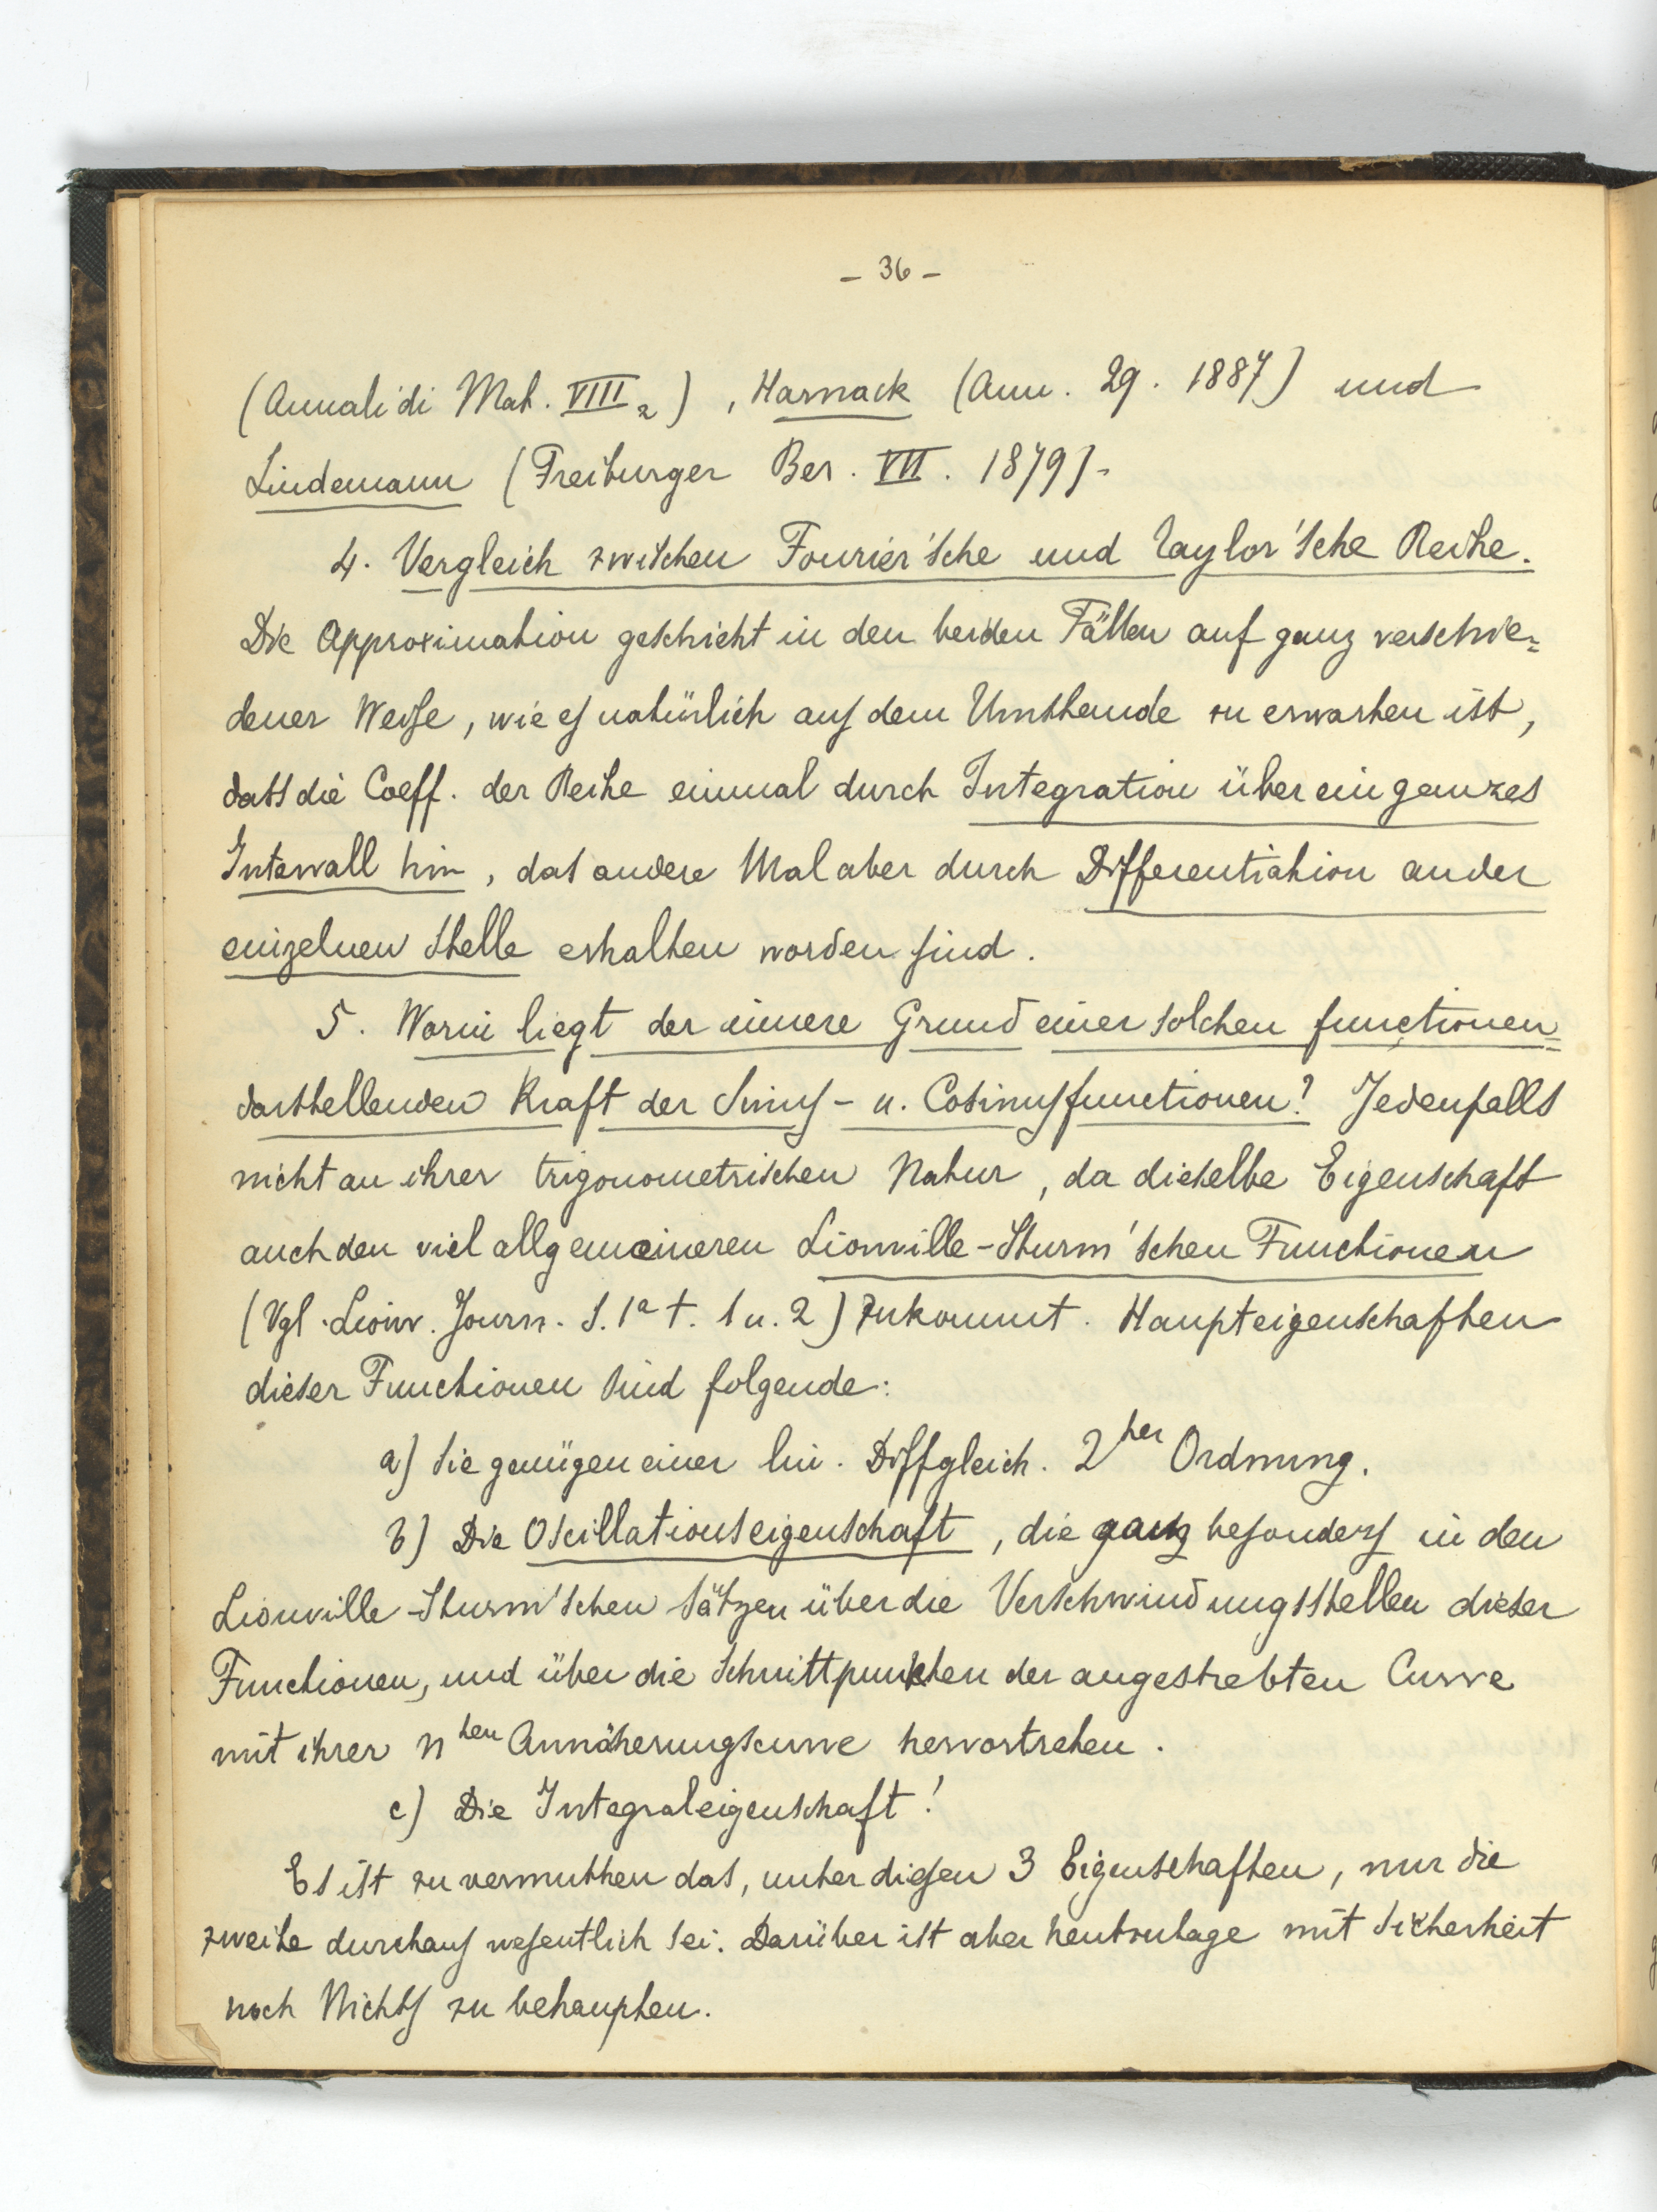 - 36 -
(Annali di Mat. VIII 2) , Harnack (Ann. 29. 1887) und
Lindemann (Freiburger Ber. VII. 1879).
4. Vergleich zwischen Fourier'sche und Taylor'sche Reihe.
Die Approximation geschieht in den beiden Fällen auf ganz verschie=
dener Weise, wie es natürlich aus dem Umstande zu erwarten ist,
dass die Coeff. der Reihe einmal durch Integration über ein ganzes
Intervall hin, das andere Mal aber durch Differentiation an der
einzelnen Stelle erhalten worden sind.
5. Worin liegt der innere Grund einer solchen functionen=
darstellenden Kraft der Sinus- u. Cosinusfunctionen? Jedenfalls
nicht an ihrer trigonometrischen Natur, da dieselbe Eigenschaft
auch den viel allgemeineren Liouville-Sturm'schen Functionen
(Vgl. Liouv. Journ. S. 1a t. 1 u. 2) zukommt. Haupteigenschaften
dieser Functionen sind folgende:
a) Sie genügen einer lin. Diffgleich. 2ter Ordnung.
b) Die Oscillationseigenschaft, die ganz besonders in den
Liouville-Sturm'schen Sätzen über die Verschwindungsstellen dieser
Functionen, und über die Schnittpunkten der angestrebten Curve
mit ihrer nten Annäherungscurve hervortreten.
c) Die Integraleigenschaft!
Es ist zu vermuthen das, unter diesen 3 Eigenschaften, nur die
zweite durchaus wesentlich sei. Darüber ist aber heutzutage mit Sicherheit
noch Nichts zu behaupten.